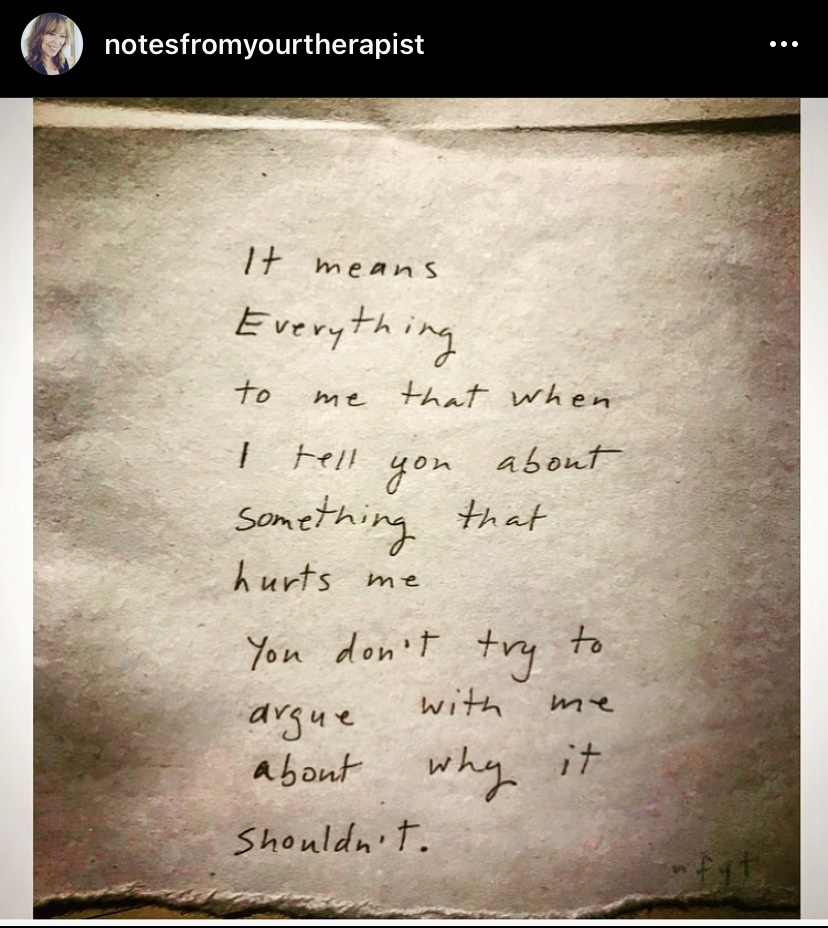 notesfromyourtherapist
It means
Everything
to me that when
I tell you about
something that
hurts me
You don't try to
argue with me
about why it
shouldn't.
nfyt